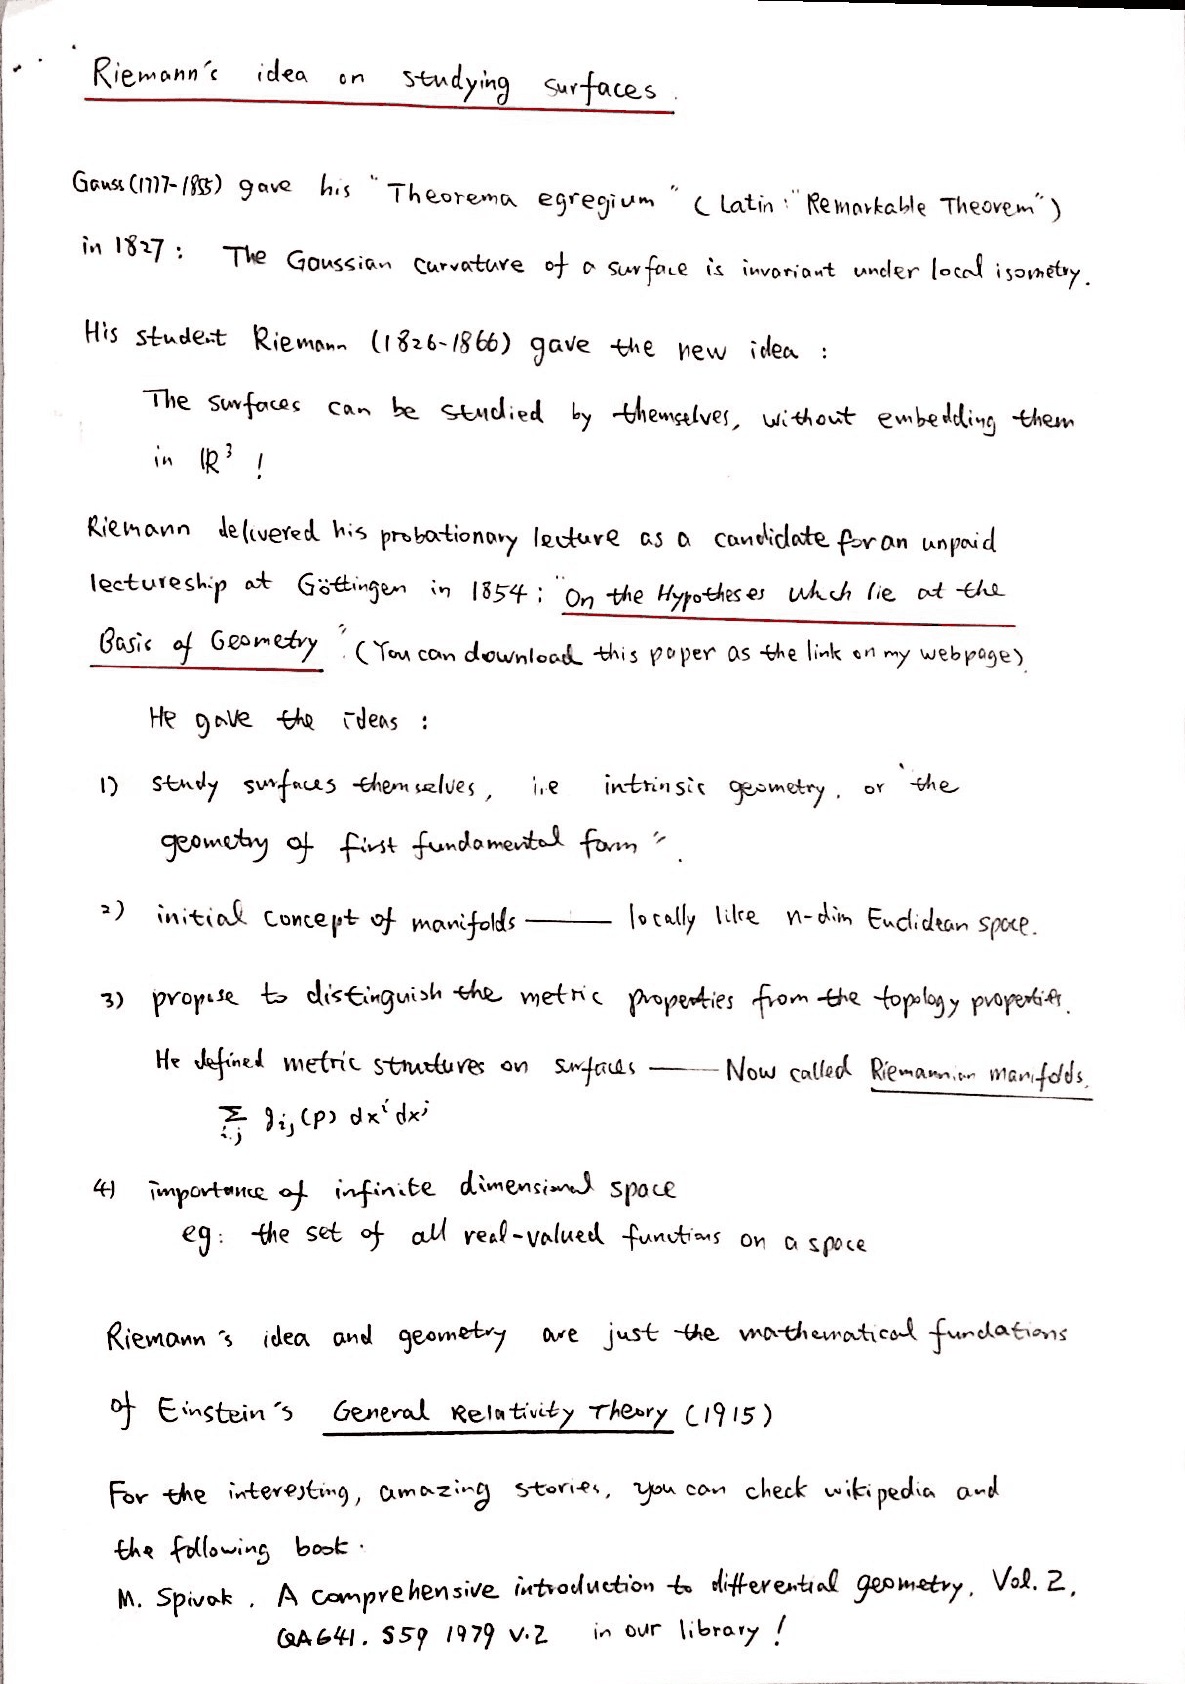 Riemann's idea on studying surfaces.
Gauss (1777-1855) gave his "Theorema egregium" (Latin: "Remarkable Theorem")
in 1827: The Gaussian curvature of a surface is invariant under local isometry.
His student Riemann (1826-1866) gave the new idea:
The surfaces can be studied by themselves, without embedding them
in ℝ³ !
Riemann delivered his probationary lecture as a candidate for an unpaid
lectureship at Göttingen in 1854: "On the Hypotheses which lie at the
Basis of Geometry". (You can download this paper as the link on my webpage)
He gave the ideas:
1) study surfaces themselves, i.e intrinsic geometry, or "the
geometry of first fundamental form".
2) initial concept of manifolds —— locally like n-dim Euclidean space.
3) propose to distinguish the metric properties from the topology properties.
He defined metric structures on surfaces —— Now called Riemannian manifolds.
∑ i,j g_ij (p) dx^i dx^j
4) importance of infinite dimensional space
eg: the set of all real-valued functions on a space
Riemann's idea and geometry are just the mathematical fundations
of Einstein's General Relativity Theory (1915)
For the interesting, amazing stories, you can check wikipedia and
the following book.
M. Spivak, A comprehensive introduction to differential geometry, Vol. 2,
QA641. S59 1979 v.2 in our library!